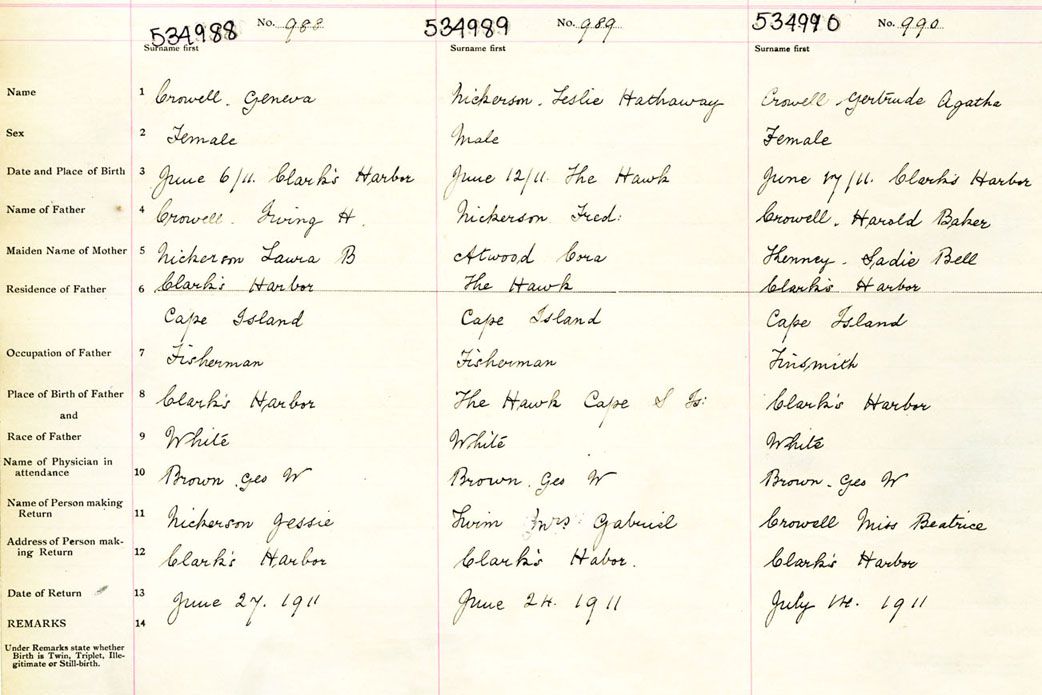 534988 No. 988 534989 No. 989 534990 No. 990
Surname first Surname first Surname first
Name 1 Crowell. Geneva Nickerson. Leslie Hathaway Crowell Gertrude Agatha
Sex 2 Female Male Female
Date and Place of Birth 3 June 6/11. Clark's Harbor June 12/11. The Hawk June 17/11. Clark's Harbor
Name of Father 4 Crowell. Irving H. Nickerson Fred: Crowell. Harold Baker
Maiden Name of Mother 5 Nickerson Laura B Atwood Cora Kenney. Sadie Bell
Residence of Father 6 Clark's Harbor The Hawk Clark's Harbor
Cape Island Cape Island Cape Island
Occupation of Father 7 Fisherman Fisherman Tinsmith
Place of Birth of Father 8 Clark's Harbor The Hawk Cape S Is: Clark's Harbor
and
Race of Father 9 White White White
Name of Physician in
attendance 10 Brown. Geo W Brown. Geo W Brown. Geo W
Name of Person making
Return 11 Nickerson Jessie Swim Mrs Gabriel Crowell Miss Beatrice
Address of Person mak-
ing Return 12 Clark's Harbor Clark's Habor. Clark's Harbor
Date of Return 13 June 27. 1911 June 24. 1911 July 14. 1911
REMARKS 14
Under Remarks state whether
Birth is Twin, Triplet, Ille-
gitimate or Still-birth.